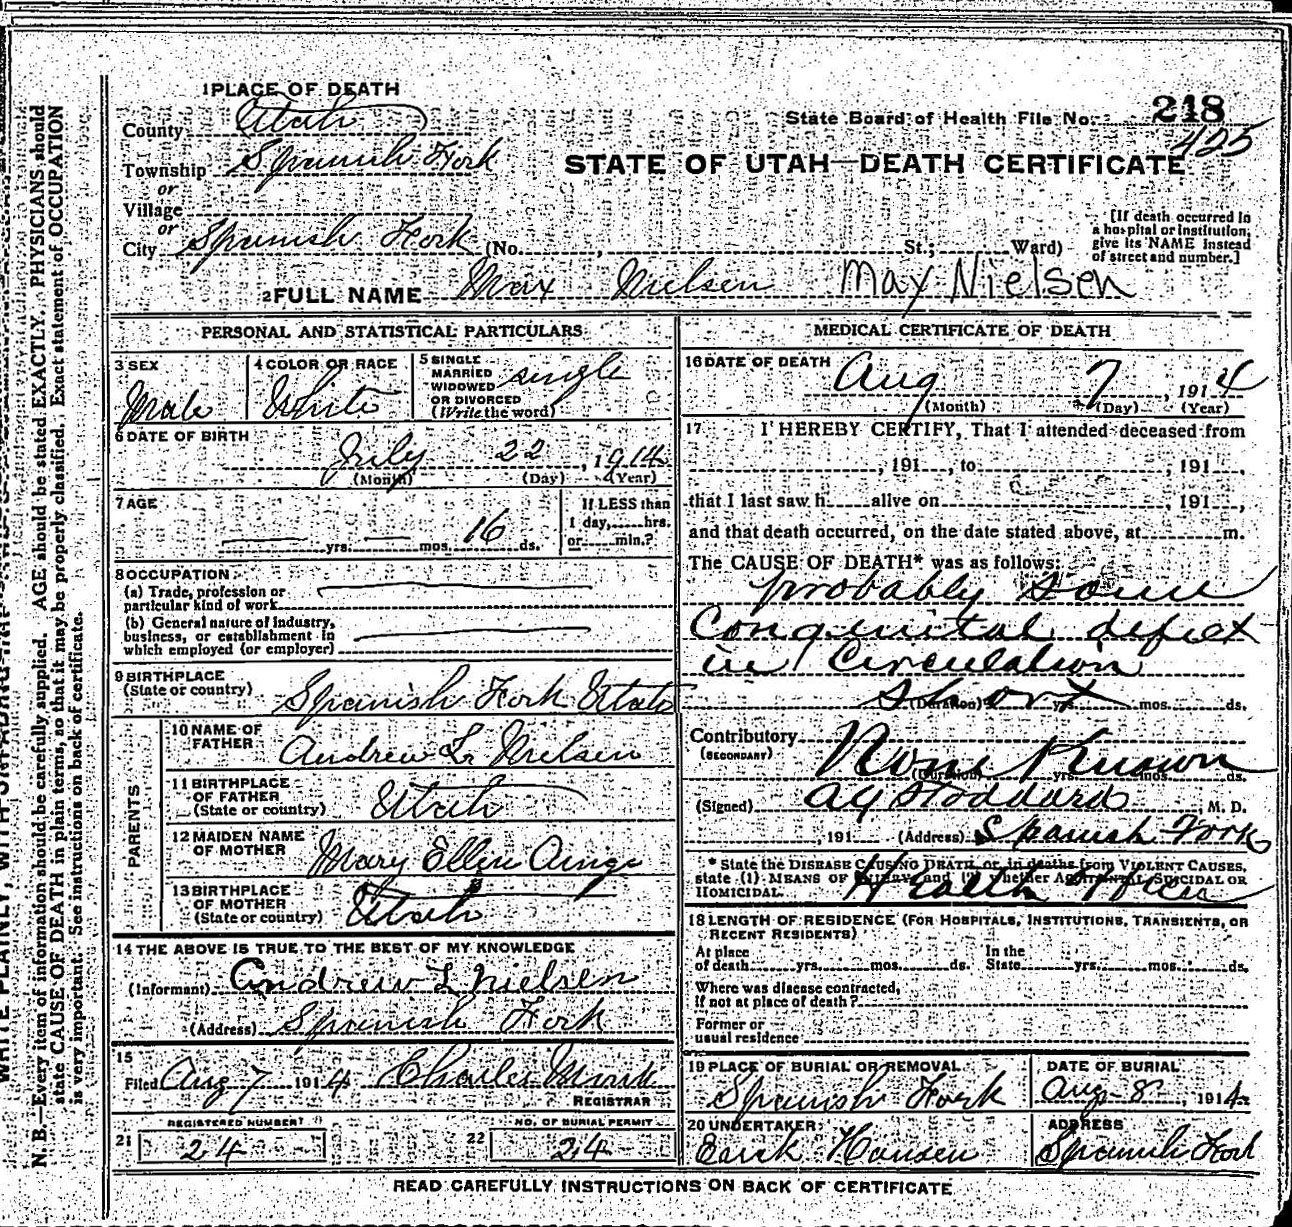 1 PLACE OF DEATH
County Utah
Township Spanish Fork
or
Village
or
City Spanish Fork (No. , St.; Ward)
State Board of Health File No. 248
425
STATE OF UTAH—DEATH CERTIFICATE
[If death occurred in
a hospital or institution,
give its NAME instead
of street and number.]
2 FULL NAME Max Nielsen Max Nielsen
PERSONAL AND STATISTICAL PARTICULARS
3 SEX
Male
4 COLOR OR RACE
White
5 SINGLE
MARRIED
WIDOWED
OR DIVORCED
(Write the word)
single
6 DATE OF BIRTH
July 22, 1914
(Month) (Day) (Year)
7 AGE
— yrs. — mos. 16 ds.
If LESS than
1 day, hrs.
or min.?
8 OCCUPATION
(a) Trade, profession or
particular kind of work
(b) General nature of industry,
business, or establishment in
which employed (or employer)
9 BIRTHPLACE
(State or country) Spanish Fork Utah
PARENTS
10 NAME OF
FATHER Andrew L Nielsen
11 BIRTHPLACE
OF FATHER
(State or country) Utah
12 MAIDEN NAME
OF MOTHER Mary Ellen
13 BIRTHPLACE
OF MOTHER
(State or country) Utah
14 THE ABOVE IS TRUE TO THE BEST OF MY KNOWLEDGE
(Informant) Andrew L Nielsen
(Address) Spanish Fork
15
Filed Aug 7 1914 Charles Monk
REGISTRAR
REGISTERED NUMBER
21 24
NO. OF BURIAL PERMIT
22 24
MEDICAL CERTIFICATE OF DEATH
16 DATE OF DEATH
Aug 7, 1914
(Month) (Day) (Year)
17 I HEREBY CERTIFY, That I attended deceased from
, 191 , to , 191 ,
that I last saw h alive on , 191 ,
and that death occurred, on the date stated above, at m.
The CAUSE OF DEATH* was as follows:
probably some
Congenital defect
in Circulation
short
(Duration) yrs. mos. ds.
Contributory
(SECONDARY)
None Known
(Duration) yrs. mos. ds.
(Signed) A G Stoddard, M. D.
, 191 (Address) Spanish Fork
* State the DISEASE CAUSING DEATH, or, in deaths from VIOLENT CAUSES,
state (1) MEANS OF INJURY; and (2) whether ACCIDENTAL, SUICIDAL OR
HOMICIDAL.
Health Officer
18 LENGTH OF RESIDENCE (FOR HOSPITALS, INSTITUTIONS, TRANSIENTS, OR
RECENT RESIDENTS)
At place
of death yrs. mos. ds.
In the
State yrs. mos. ds.
Where was disease contracted,
if not at place of death?
Former or
usual residence
19 PLACE OF BURIAL OR REMOVAL
Spanish Fork
DATE OF BURIAL
Aug 8, 1914
20 UNDERTAKER
Erick Hansen
ADDRESS
Spanish Fork
READ CAREFULLY INSTRUCTIONS ON BACK OF CERTIFICATE
N. B.—Every item of information should be carefully supplied. AGE should be stated EXACTLY. PHYSICIANS should
state CAUSE OF DEATH in plain terms, so that it may be properly classified. Exact statement of OCCUPATION
is very important. See instructions on back of certificate.